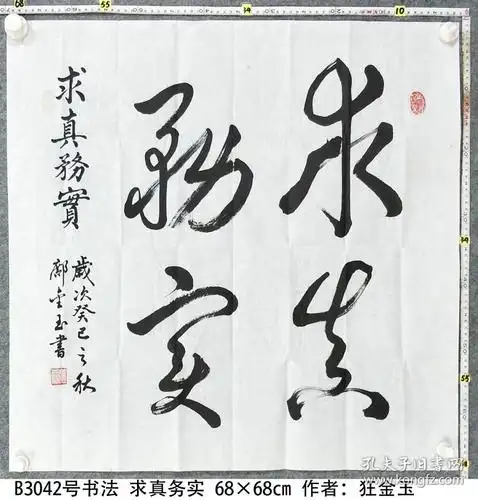 求真
務实
求真務實
歲次癸巳之秋
鄺金玉書
B3042号书法 求真务实 68×68cm 作者: 金玉
孔夫子旧书网